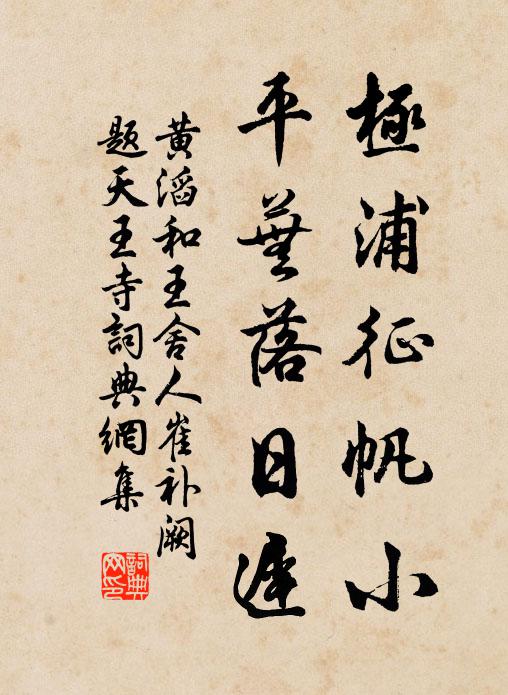 極浦征帆小
平蕪落日遲
黃滔和王舍人崔补闕
题天王寺詞典網集
詞典
网印